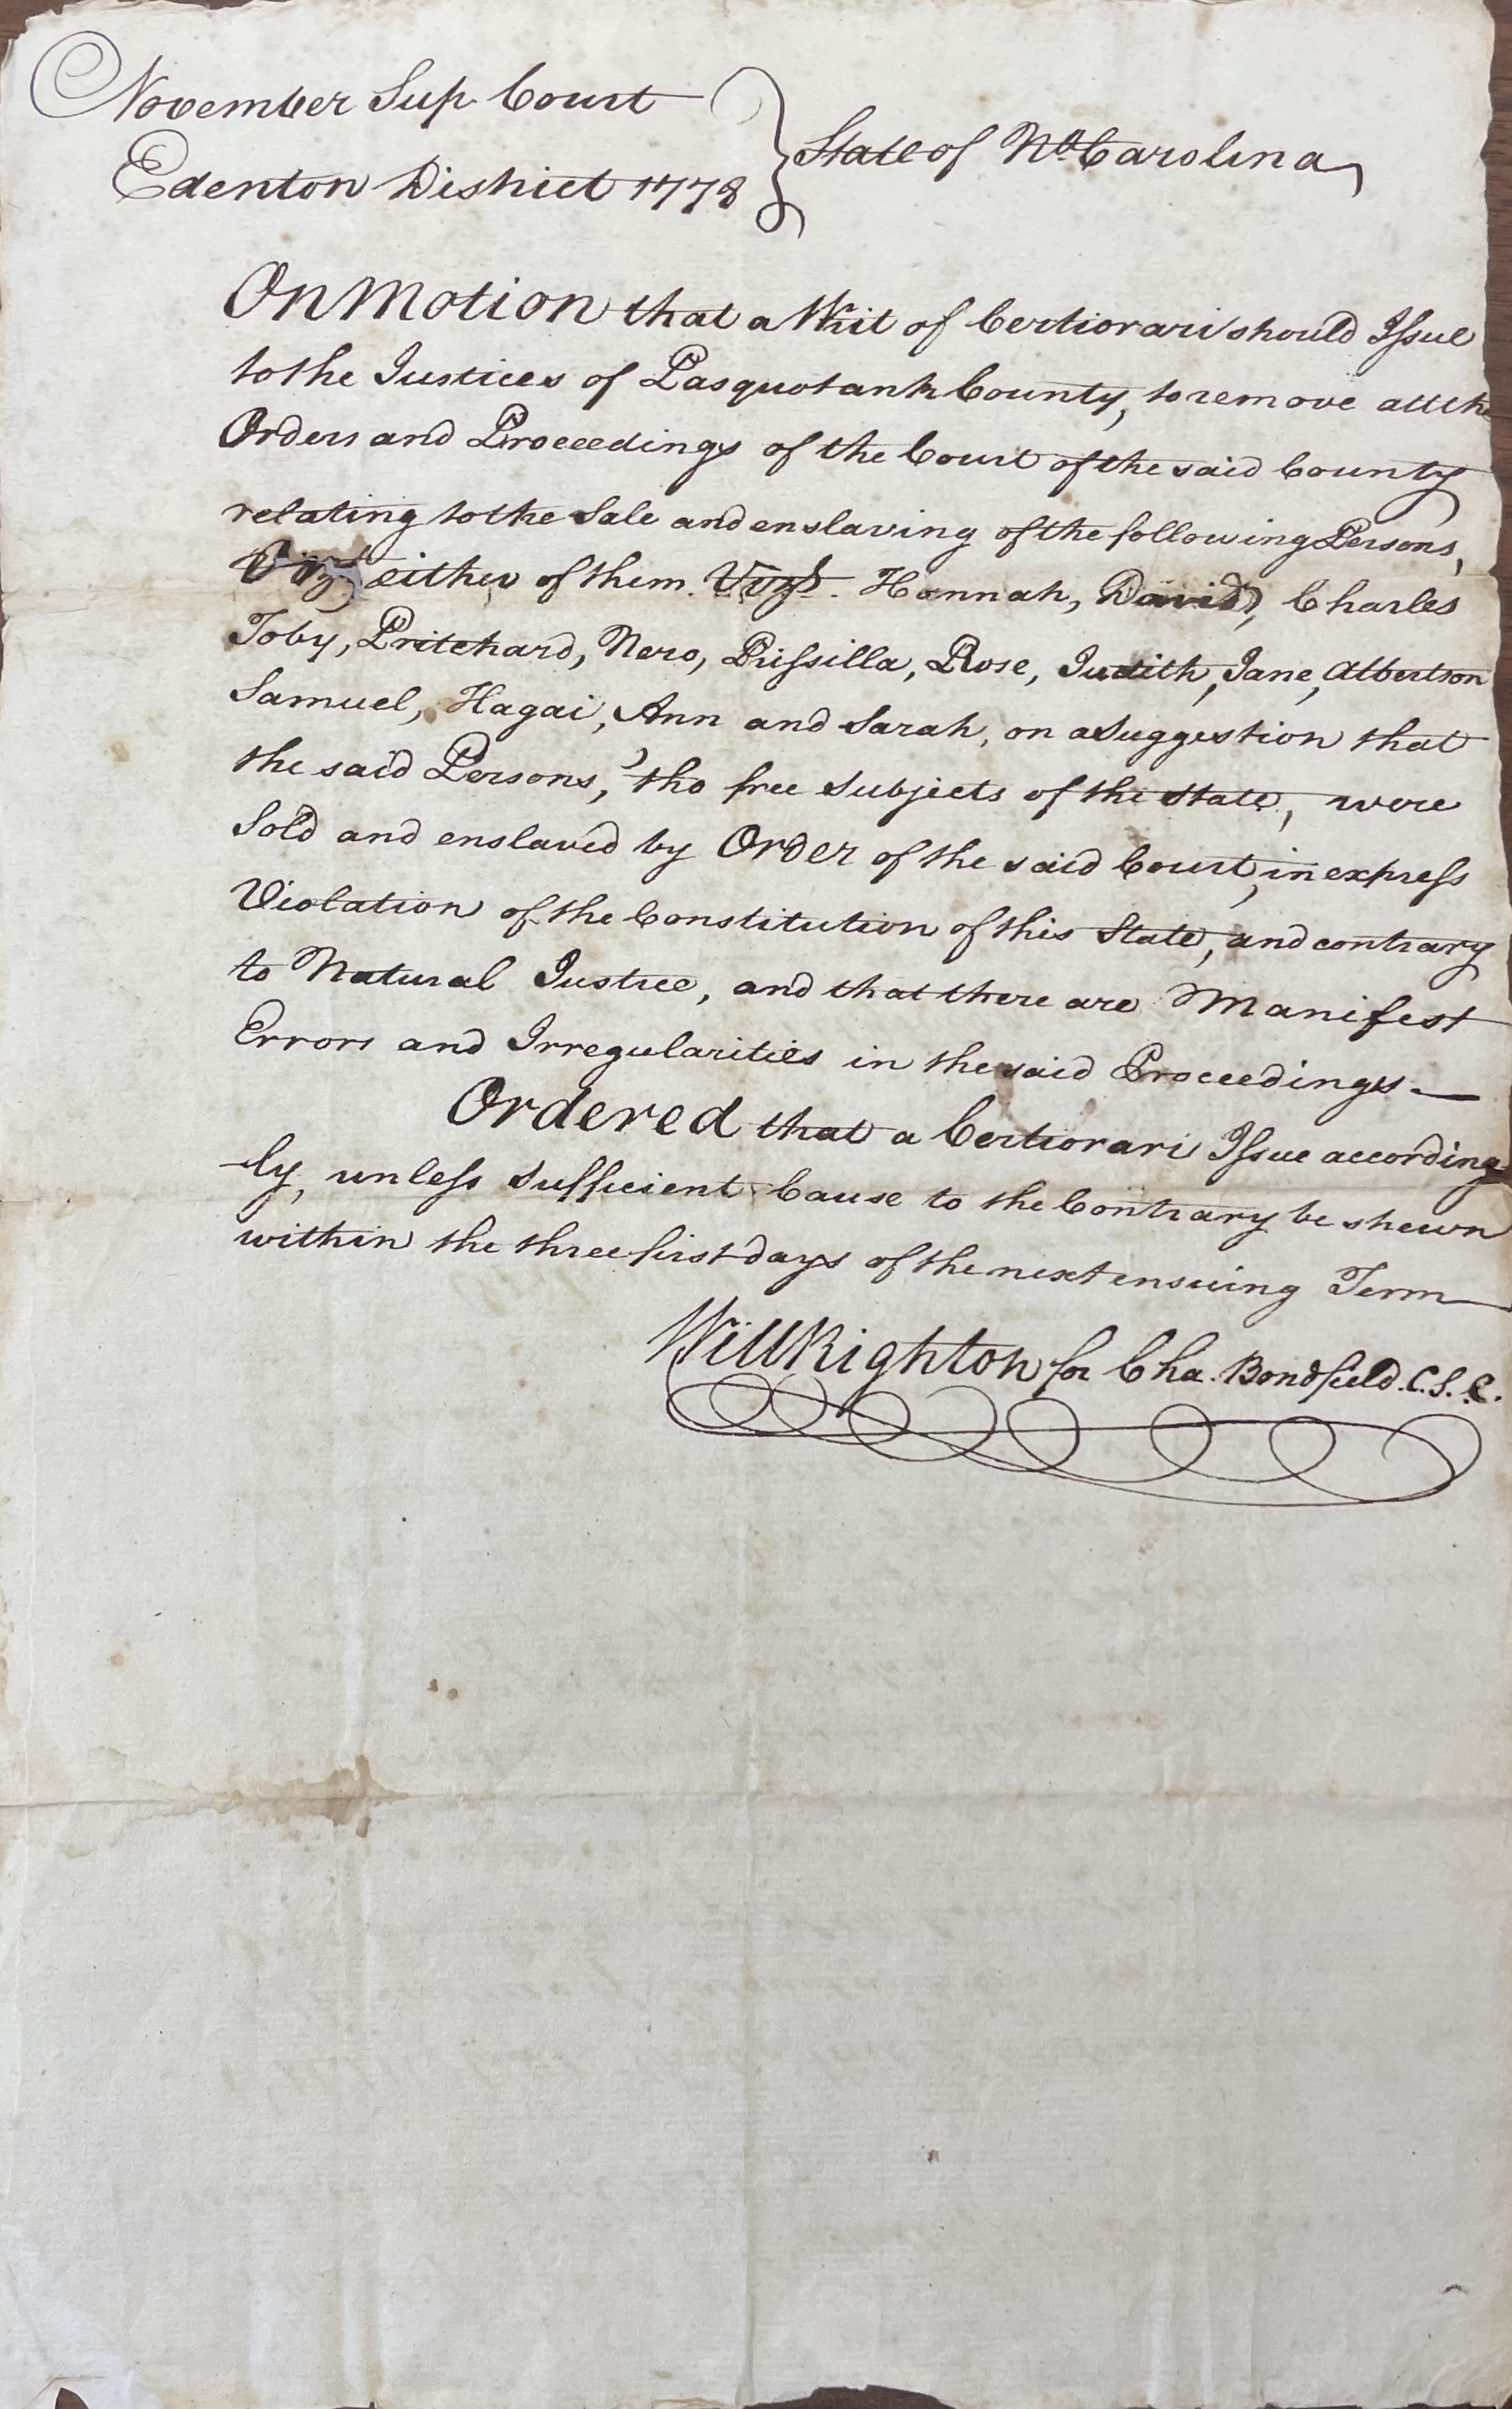 November Sup. Court
Edenton District 1778 } State of No Carolina
On Motion that a Writ of Certiorari should Issue
to the Justices of Pasquotank County, to remove all the
Orders and Proceedings of the Court of the said County
relating to the Sale and enslaving of the following Persons,
either of them. Vizt. Hannah, David, Charles
Toby, Pritchard, Nero, Prissilla, Rose, Judith, Jane, Albertson
Samuel, Hagai, Ann and Sarah, on a Suggestion that
the said Persons, tho' free Subjects of the State, were
Sold and enslaved by Order of the said Court, in express
Violation of the Constitution of this State, and contrary
to Natural Justice, and that there are Manifest
Errors and Irregularities in the said Proceedings —
Ordered that a Certiorari Issue according
-ly, unless Sufficient Cause to the Contrary be shewn
within the three first days of the next ensuing Term
Will Righton for Cha. Bondfield. C. S. C.